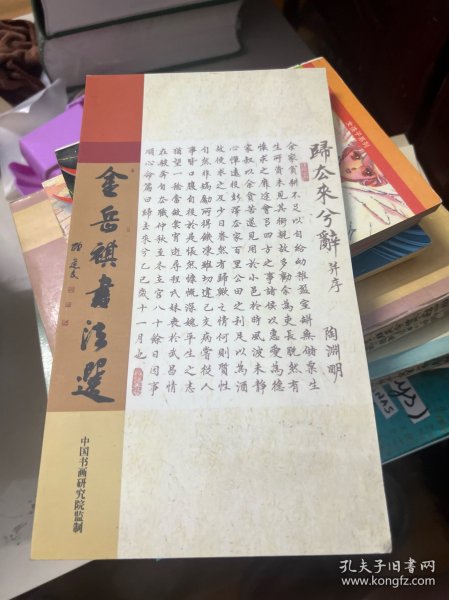 歸去來兮辭 并序
陶淵明
余家貧耕不足以自給幼稚盈室缾無儲粟生
生所資未見其術親故多勸余為長吏脫然有
懷求之靡途會有四方之事諸侯以惠愛為德
家叔以余貧苦遂見用於小邑於時風波未靜
心憚遠役彭澤去家百里公田之利足以為酒
故便求之及少日眷然有歸歟之情何則質性
自然非矯勵所得飢凍雖切違己交病嘗從人
事皆口腹自役於是悵然慷慨深媿平生之志
猶望一稔當斂裳宵逝尋程氏妹喪於武昌情
在駿奔自免去職仲秋至冬在官八十餘日因事
順心命篇曰歸去來兮乙巳歲十一月也
金岳祺書法選
中国书画研究院监制
孔夫子旧书网
www.kongfz.com